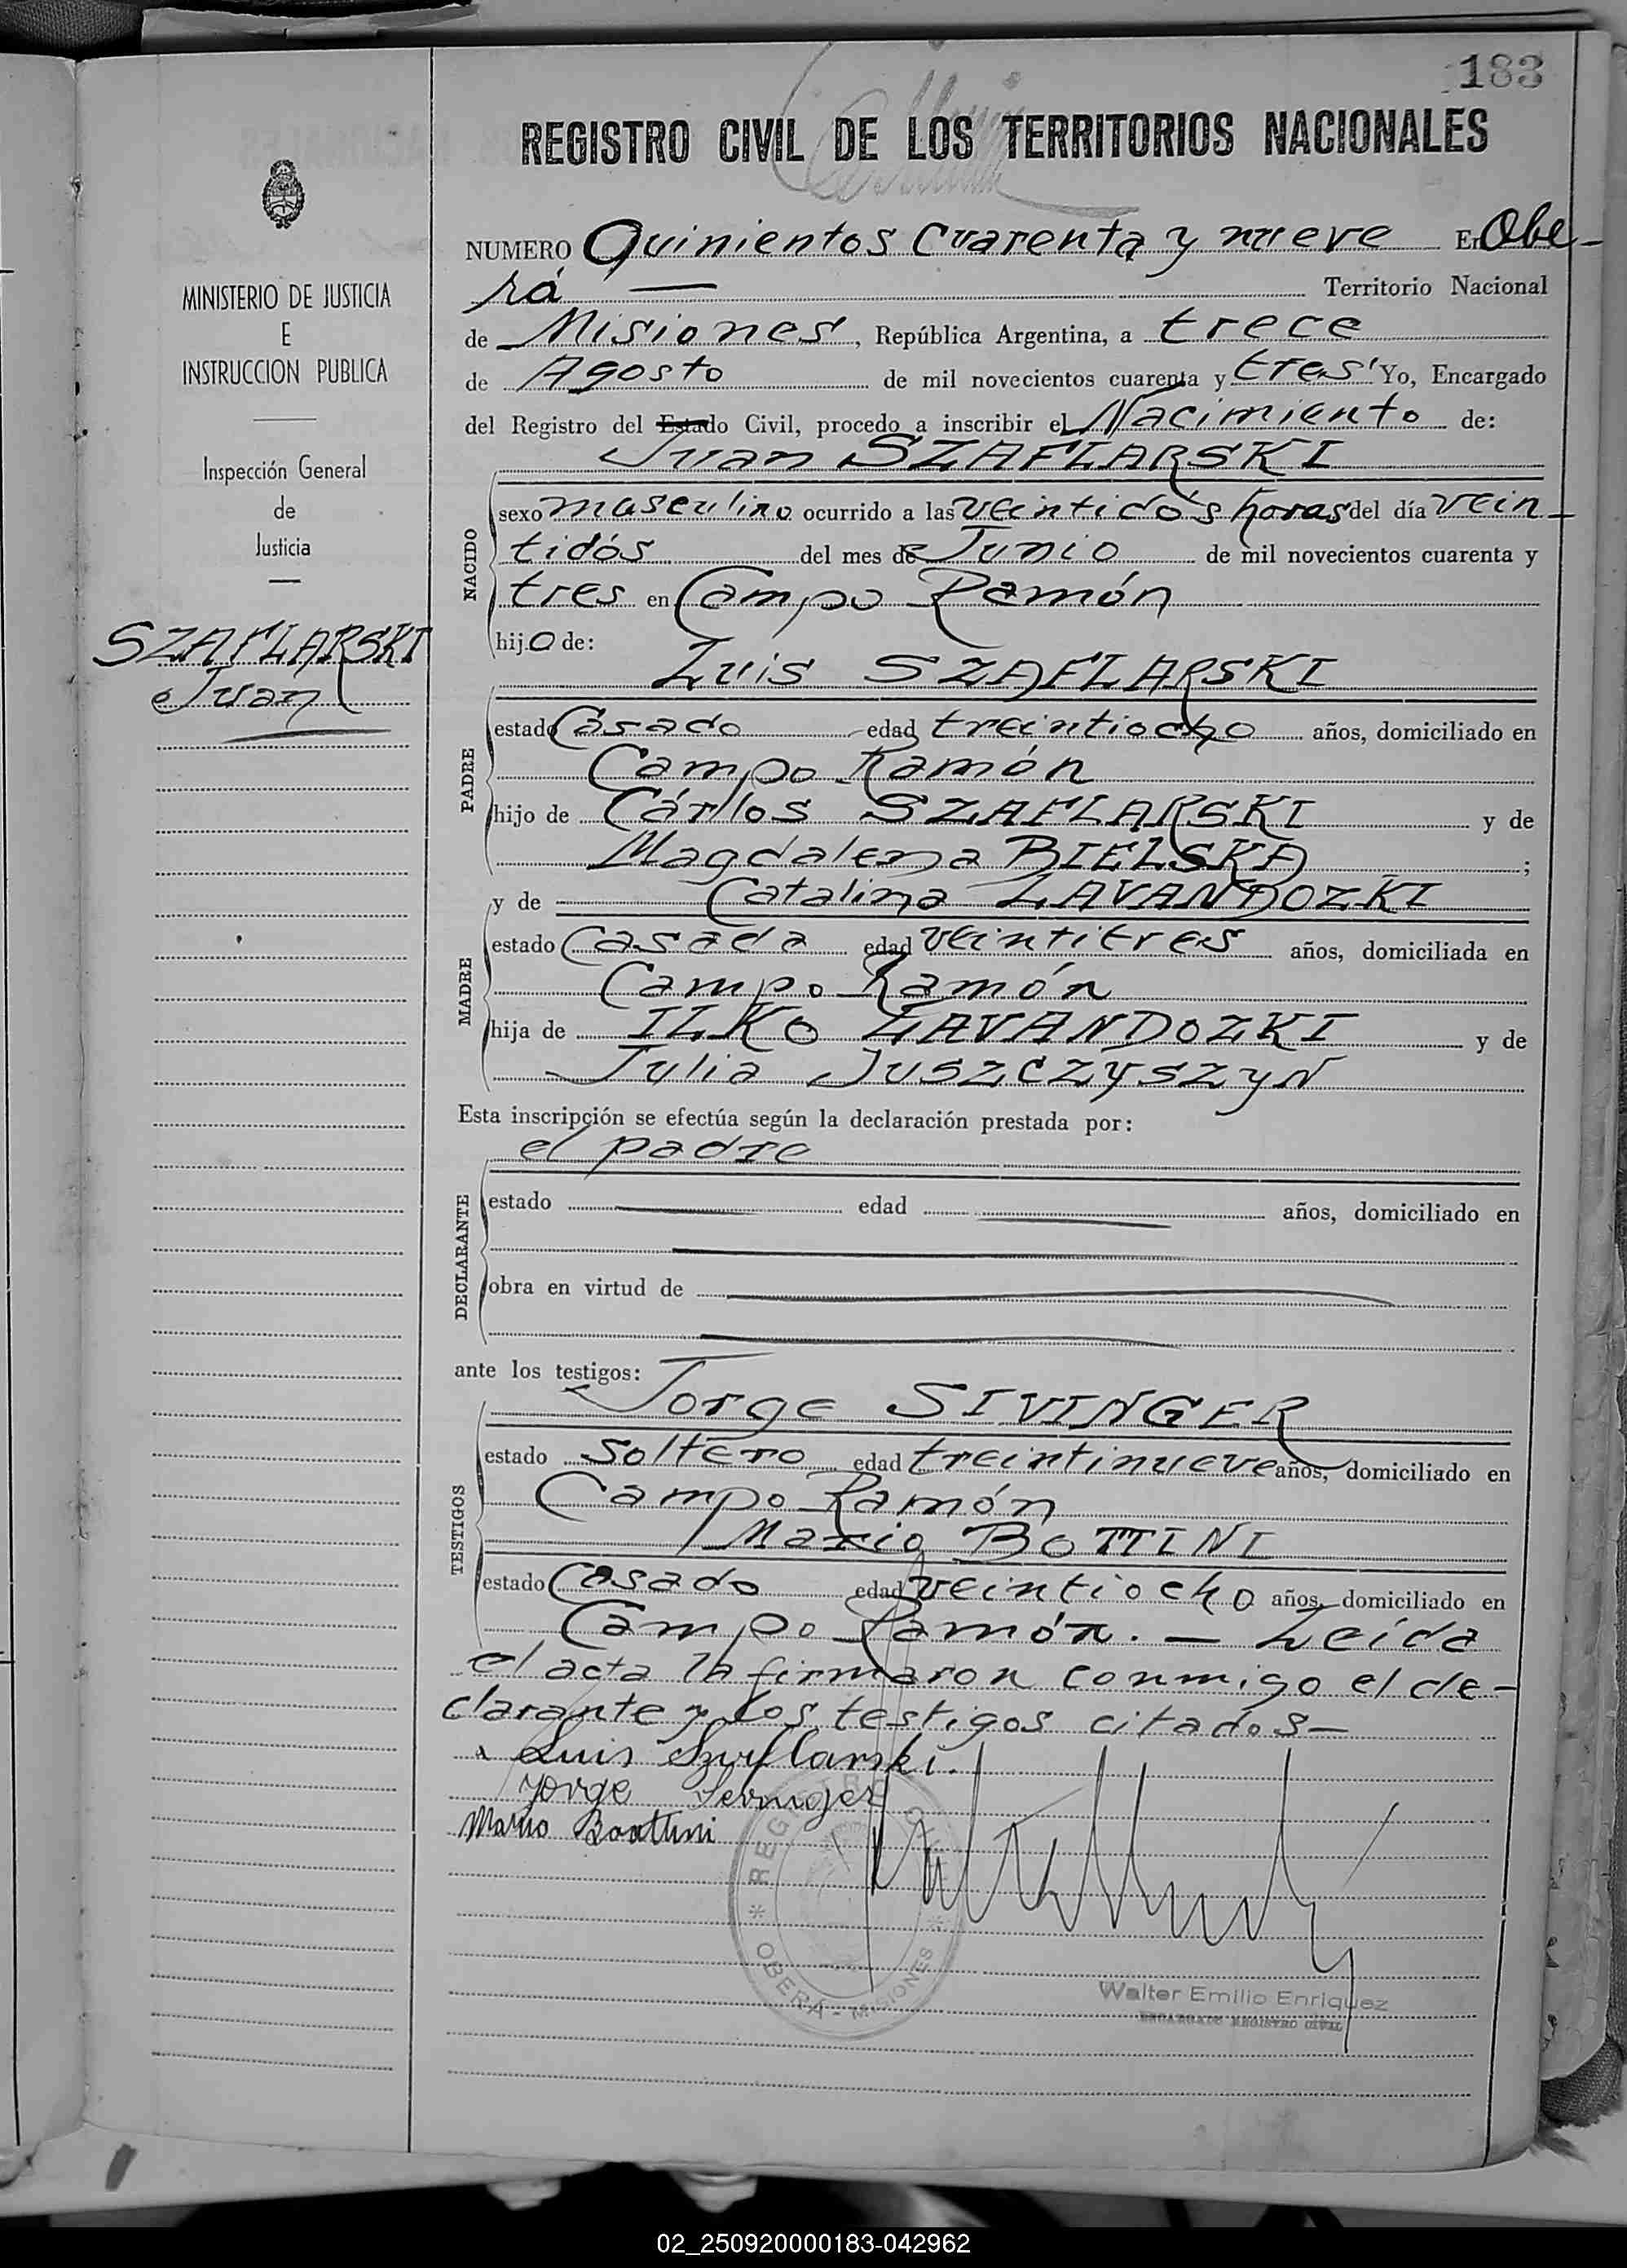 183
REGISTRO CIVIL DE LOS TERRITORIOS NACIONALES
MINISTERIO DE JUSTICIA
E
INSTRUCCION PUBLICA
Inspección General
de
Justicia
SZAFLARSKI
Juan
NUMERO Quinientos cuarenta y nueve En Obe-
rá — Territorio Nacional
de Misiones, República Argentina, a trece
de Agosto de mil novecientos cuarenta y tres Yo, Encargado
del Registro del Estado Civil, procedo a inscribir el Nacimiento de:
Juan SZAFLARSKI
NACIDO
sexo masculino ocurrido a las veintidós horas del día vein-
tidós del mes de Junio de mil novecientos cuarenta y
tres en Campo Ramón
hijo de:
Luis SZAFLARSKI
PADRE
estado Casado edad treintiocho años, domiciliado en
Campo Ramón
hijo de Cárlos SZAFLARSKI y de
Magdalena BIELSKA ;
y de Catalina LAVANDOZKI
MADRE
estado Casada edad veintitres años, domiciliada en
Campo Ramón
hija de ILKO LAVANDOZKI y de
Julia JUSZCZYSZYN
Esta inscripción se efectúa según la declaración prestada por:
el padre
DECLARANTE
estado edad años, domiciliado en
obra en virtud de
ante los testigos:
Jorge SIVINGER
TESTIGOS
estado Soltero edad treintinueve años, domiciliado en
Campo Ramón
Mario BOTTINI
estado Casado edad veintiocho años, domiciliado en
Campo Ramón. — Leída
el acta la firmaron conmigo el de-
clarante y los testigos citados—
Luis Szaflarski.
Jorge
Mario Boattini
REGISTRO CIVIL
OBERÁ - MISIONES
Walter Emilio Enriquez
ENCARGADO REGISTRO CIVIL
02_250920000183-042962